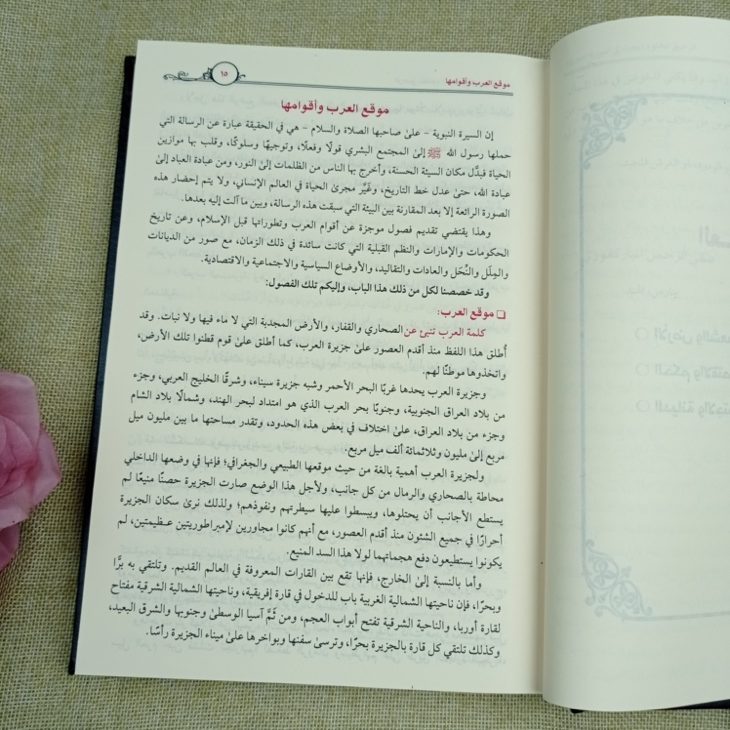 موقع العرب وأقوامها
١٥
موقع العرب وأقوامها
إن السيرة النبوية - علىٰ صاحبها الصلاة والسلام - هي في الحقيقة عبارة عن الرسالة التي
حملها رسول الله ﷺ إلىٰ المجتمع البشري قولًا وفعلًا، وتوجيهًا وسلوكًا، وقلب بها موازين
الحياة فبدَّل مكان السيئة الحسنة، وأخرج بها الناس من الظلمات إلىٰ النور، ومن عبادة العباد إلىٰ
عبادة الله، حتىٰ عدل خط التاريخ، وغَيَّر مجرىٰ الحياة في العالم الإنساني، ولا يتم إحضار هذه
الصورة الرائعة إلا بعد المقارنة بين البيئة التي سبقت هذه الرسالة، وبين ما آلت إليه بعدها.
وهذا يقتضي تقديم فصول موجزة عن أقوام العرب وتطوراتها قبل الإسلام، وعن تاريخ
الحكومات والإمارات والنظم القبلية التي كانت سائدة في ذلك الزمان، مع صور من الديانات
والمِلَل والنِّحَل والعادات والتقاليد، والأوضاع السياسية والاجتماعية والاقتصادية.
وقد خصصنا لكل من ذلك هذا الباب، وإليكم تلك الفصول:
❑ موقع العرب:
كلمة العرب تنبئ عن الصحاري والقفار، والأرض المجدبة التي لا ماء فيها ولا نبات. وقد
أُطلق هذا اللفظ منذ أقدم العصور علىٰ جزيرة العرب، كما أطلق علىٰ قوم قطنوا تلك الأرض،
واتخذوها موطنًا لهم.
وجزيرة العرب يحدها غربًا البحر الأحمر وشبه جزيرة سيناء، وشرقًا الخليج العربي، وجزء
من بلاد العراق الجنوبية، وجنوبًا بحر العرب الذي هو امتداد لبحر الهند، وشمالًا بلاد الشام
وجزء من بلاد العراق، علىٰ اختلاف في بعض هذه الحدود، وتقدر مساحتها ما بين مليون ميل
مربع إلىٰ مليون وثلاثمائة ألف ميل مربع.
ولجزيرة العرب أهمية بالغة من حيث موقعها الطبيعي والجغرافي؛ فإنها في وضعها الداخلي
محاطة بالصحاري والرمال من كل جانب، ولأجل هذا الوضع صارت الجزيرة حصنًا منيعًا لم
يستطع الأجانب أن يحتلوها، ويبسطوا عليها سيطرتهم ونفوذهم؛ ولذلك نرىٰ سكان الجزيرة
أحرارًا في جميع الشئون منذ أقدم العصور، مع أنهم كانوا مجاورين لإمبراطوريتين عظيمتين، لم
يكونوا يستطيعون دفع هجماتهما لولا هذا السد المنيع.
وأما بالنسبة إلىٰ الخارج، فإنها تقع بين القارات المعروفة في العالم القديم. وتلتقي به برًّا
وبحرًا، فإن ناحيتها الشمالية الغربية باب للدخول في قارة إفريقية، وناحيتها الشمالية الشرقية مفتاح
لقارة أوربا، والناحية الشرقية تفتح أبواب العجم، ومن ثَمَّ آسيا الوسطىٰ وجنوبها والشرق البعيد،
وكذلك تلتقي كل قارة بالجزيرة بحرًا، وترسىٰ سفنها وبواخرها علىٰ ميناء الجزيرة رأسًا.